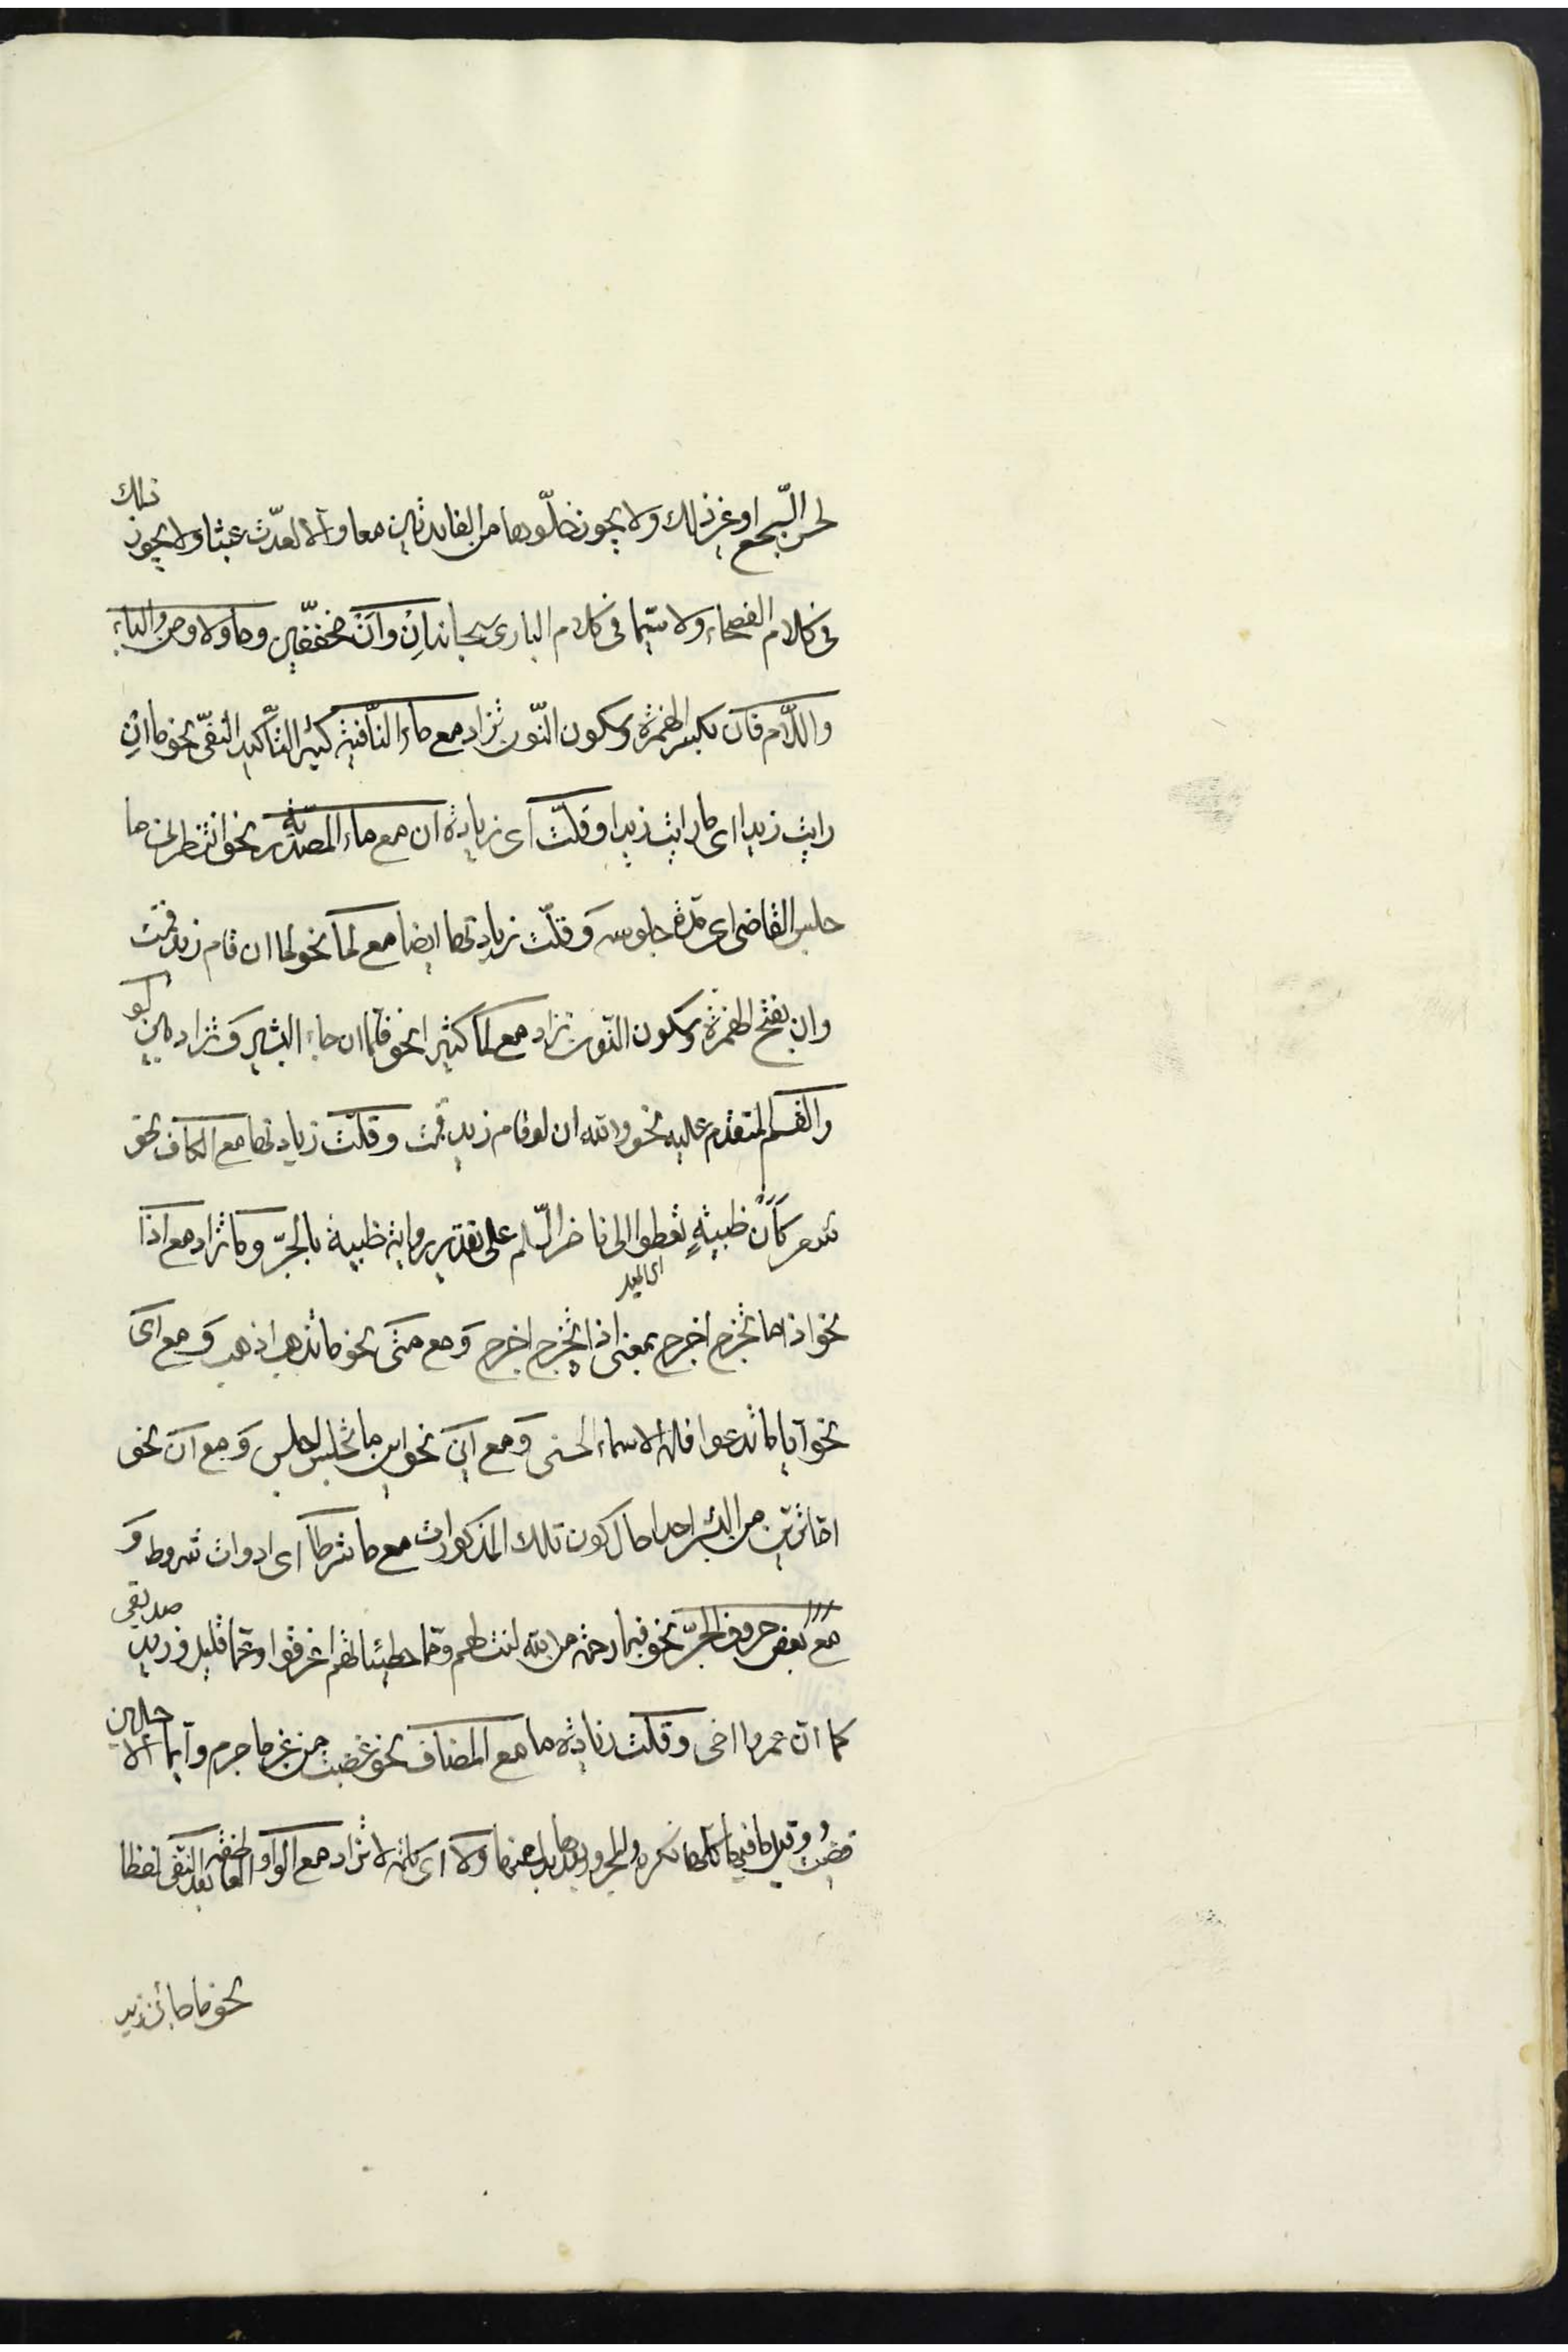 لحسن السّجع او غير ذلك ولا يجوز خلّوها من الفايدتين معا والّا لعدّت عبثا ولا يجوز ذلك
فى كلام الفصحاء ولا سيّما فى كلام البارى سبحانه انْ وانْ مخفّفين وما ولا ومن والباء
واللّام فان بكسر الهمزة وسكون النّون تزاد مع ماء النّافية كثير التأكيد النّفى نحو ما ان
رايت زيدا اى ما رايت زيدا وقلّت اى زيادة ان مع ماء المصدريّة نحو انتظر ان ما
جلس القاضى اى مدّة جلوسه وقلّت زيادتها ايضا مع لما نحو لما ان قام زيد قمت
وان بفتح الهمزة وسكون النّون تزاد مع لما كثيرا نحو فلما ان جاء البشير وتزاد بين لو
والقسم المتقدم عليه نحو والله ان لو قام زيد قمت وقلّت زيادتها مع الكاف نحو
شعر كأن ظبيةٍ تعطوا الى ناضر السّلم على تقدير رواية ظبية بالجرّ وما تزاد مع اذا
نحو اذا ما تخرج اخرج بمعنى اذا تخرج اخرج ومع متى نحو ما تذهب اذهب ومع اى
نحو ايا ما تدعوا فله الاسماء الحسنى ومع اين نحو اين ما تجلس اجلس ومع ان نحو
امّا ترين من البشر احدا حال كون تلك المذكورات مع ما شرطا اى ادوات شروط و
مع بعض حروف الجرّ نحو فبما رحمة من الله لنت لهم وممّا خطيئاتهم اغرقوا وعمّا قليل وزيد صديقى
كما ان عمروا اخى وقلّت زيادة ما مع المضاف نحو غضبت من غير ما جرم وايما الاجلين
قضيت وقيل ما فيها كلها نكرة والمجرور بعدها بدل منها ولا اى كلمة لا تزاد مع الواو العاطفة بعد النّفى لفظا
نحو ما جائنى زيد